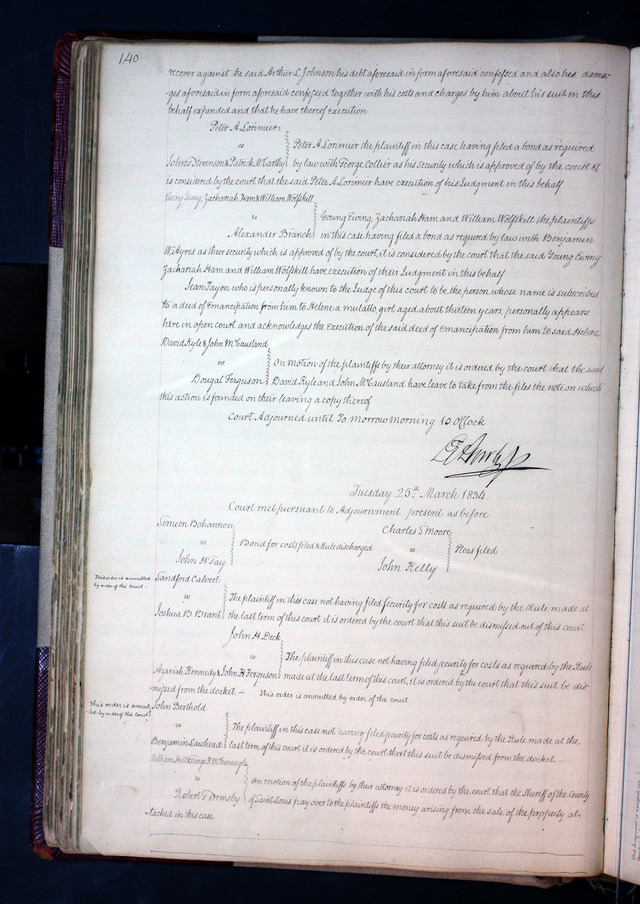 140
recover against the said Arthur L Johnson his debt aforesaid in form aforesaid confessed and also his dama-
-ges aforesaid in form aforesaid confessed together with his costs and charges by him about his suit in this
behalf expended and that he have thereof execution
Peter A Lorimier
vs
John Stevenson & Patrick McCarthy
Peter A Lorimier the plaintiff in this case having filed a bond as required
by law with George Collier as his Security which is approved of by the court it
is considered by the court that the said Peter A Lorimier have execution of his Judgment in this behalf
Young Ewing, Zachariah Ham & William Wolfskill
vs
Alexander Branch
Young Ewing, Zachariah Ham and William Wolfskill the plaintiffs
in this case having filed a bond as required by law with Benjamin
W Ayres as their security which is approved of by the court, it is considered by the court that the said Young Ewing
Zachariah Ham and William Wolfskill have execution of their Judgment in this behalf
Jean Tayon who is personally known to the Judge of this court to be the person whose name is subscribed
to a deed of Emancipation from him to Helene a mulatto, girl aged about thirteen years, personally appears
here in open court and acknowledges the Execution of the said deed of Emancipation from him to said Helene
David Kyle & John McCausland
vs
Dougal Ferguson
On motion of the plaintiffs by their attorney it is ordered by the court that the said
David Kyle and John McCausland have leave to take from the files the note on which
this action is founded on their leaving a copy thereof
Court Adjourned until To morrow morning 10 oClock
Tuesday 25th March 1834
Court met pursuant to Adjournment present as before
Simeon Bohannon
vs
John N Tay
Bond for costs filed & Rule discharged
Charles S Moore
vs
John Kelly
Pleas filed
This order is annulled
by order of the court -
Sandford Calvert
vs
Joshua B Brant
The plaintiff in this case not having filed Security for costs as required by the Rule made at
the last term of this court it is ordered by the court that this suit be dismissed out of this court
John H Peck
vs
Azariah Kennedy & John H Ferguson
The plaintiff in this case not having filed security for costs as required by the Rule
made at the last term of this court, it is ordered by the court that this suit be dis-
missed from the docket. — This order is annulled by order of the court
This order is annul-
led by order of this court
John Berthold
vs
Benjamin Lawhead
The plaintiff in this case not having filed security for costs as required by the Rule, made at the
last term of this court it is ordered by the court that this suit be dismissed from the docket.
vs
Robert F Ormsby
On motion of the plaintiffs by their attorney it is ordered by the court that the Sheriff of the County
of Saint Louis pay over to the plaintiffs the money arising from the sale of the property, at-
tached in this case